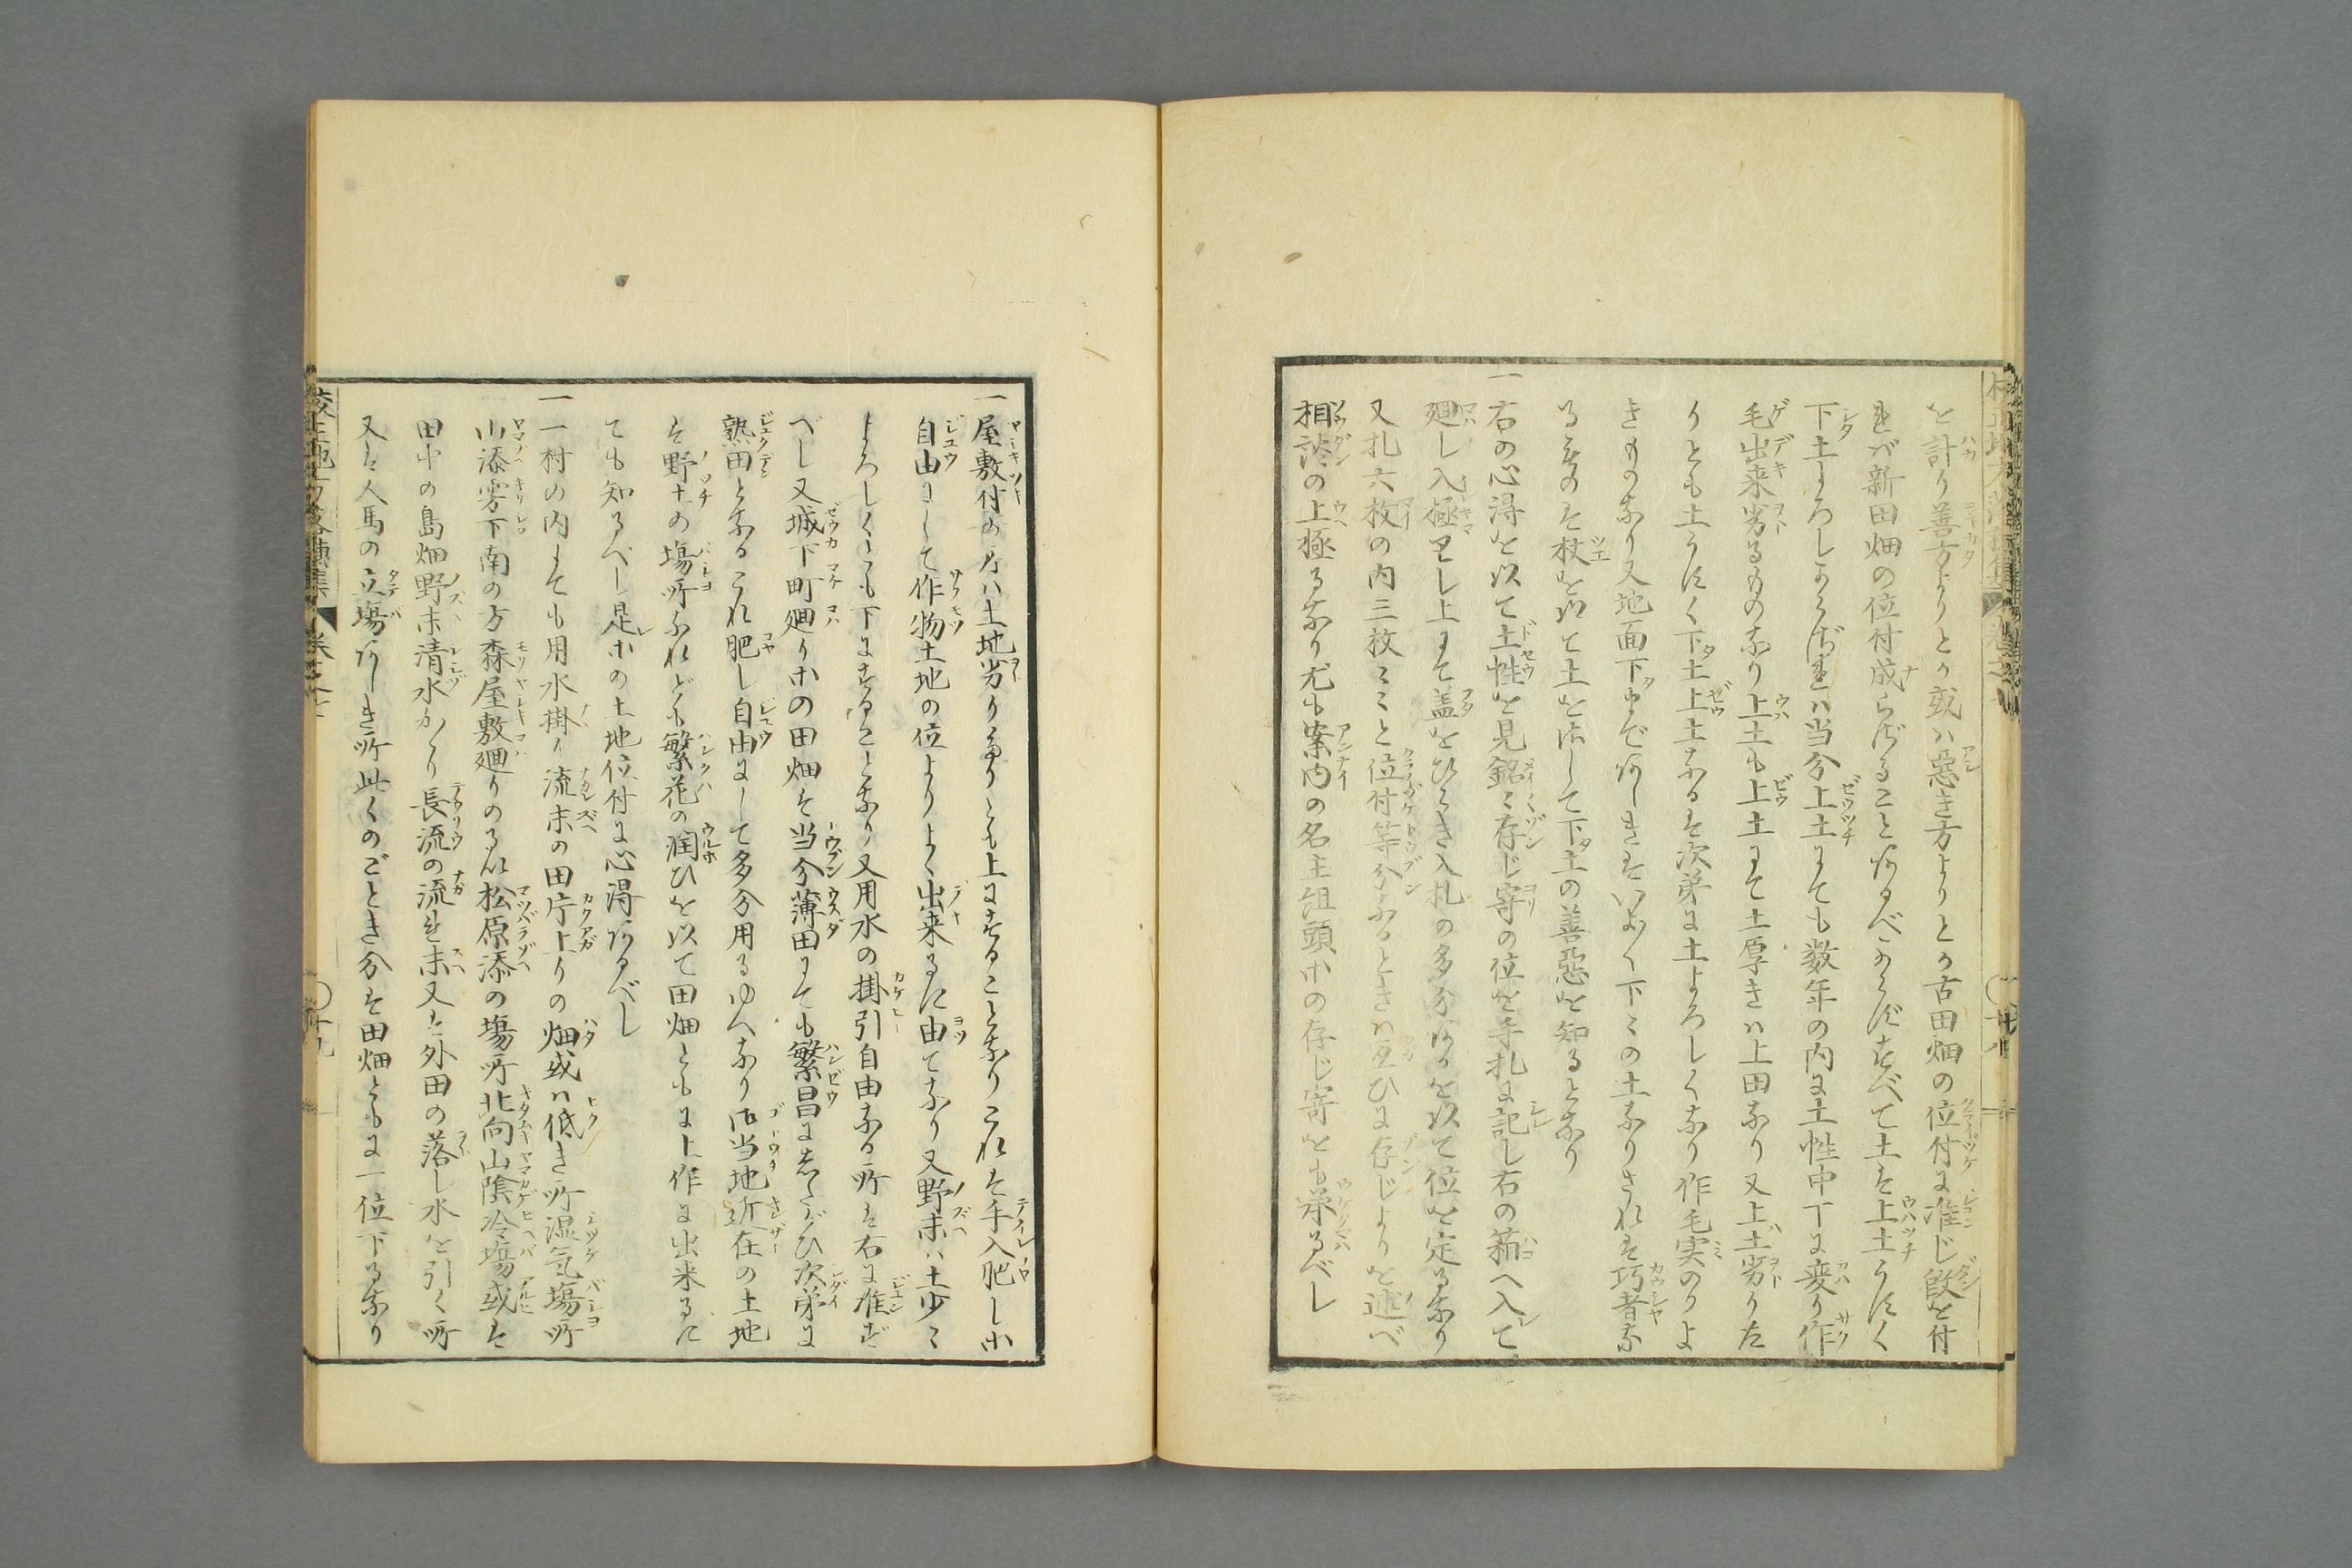 を計り善方よりとか或ハ悪き方よりとか古田畑の位付に准じ段を付
ざれバ新田畑の位付成らざること有るべからずすべて土は上土うすく
下土よろしからざれハ当分上土にても数年の内に土性中下に変り作
毛出来劣るもの也り上土も上土にて土厚きハ上田なり又上土劣りた
りとも土うすく下土上土なるは次第に土よろしくなり作毛実のりよ
きものなり又地面下まで有しきはいよ〱下こに土なりされは巧者な
るものは杖を以て土をほして下土の善悪を知るとなり
一右の心得を以て土性を見銘〻存じ寄の位を手札に記し右の箱へ入て
廻し入極めし上にて蓋をひらき入札の多分なるを以て位を定るなり
又札六枚の内三枚ミミと位付等分なるときハ互ひに存じよりを述べ
相談の上極るなり尤も案内の名主組頭ホの存じ寄をも承るべし
一屋敷付の分ハ土地劣り有りとも上にすることなりこれは手入肥しホ
自由にして作物土地の位よりよく出来るに由てなり又野末ハ土少〻
よろしくとも下にすることなり又用水の掛引自由なる所は右に准ず
べし又城下町廻りホの田畑は当分薄田にても繁昌にしたがひ次第に
熟田となるこれ肥し自由にして多分用るゆへなり御当地近在の土地
は野土の場所なれども繁花の潤ひを以て田畑ともに上作に出来るに
ても知るべし是ホの土地位付に心得有るべし
一一村の内にても用水掛り流末の田片上りの畑或ハ低き所湿気場所
山添雰下南の方森屋敷廻りのるい松原添の場所北向山陰冷場或は
田中の島畑野末清水かゝり長流の流れ末又は外田の落し水を引く所
又は人馬の立場有しき所此くのごとき分は田畑ともに一位下るなり